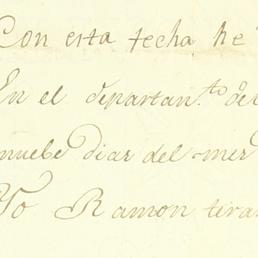 Con esta fecha he
En el departan.to de
nuebe dias del mer
Yo Ramon tiran